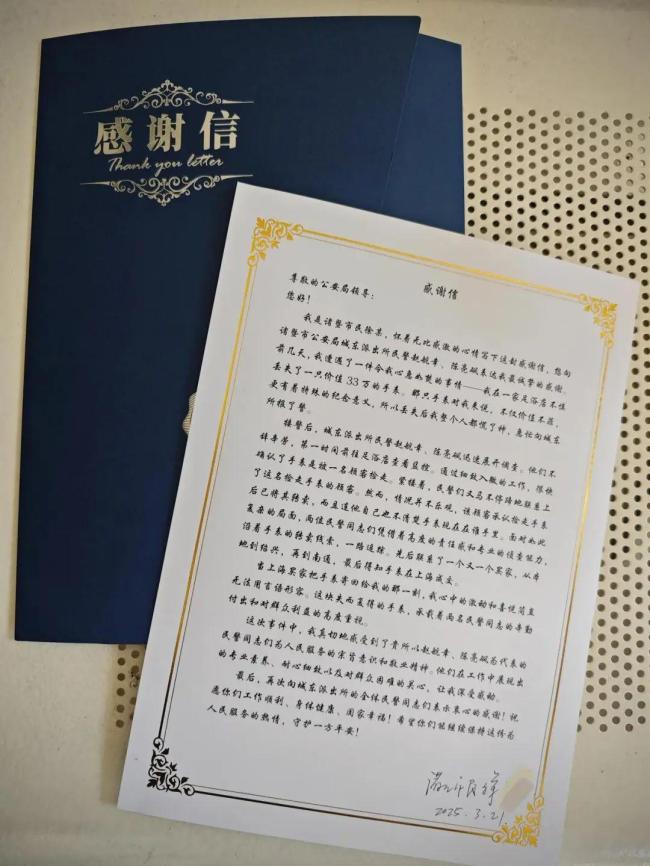 感谢信
Thank you letter
感谢信
尊敬的公安局领导：
您好！
我是诸暨市民徐某，怀着无比感激的心情写下这封感谢信，您向
诸暨市公安局城东派出所民警赵航章、陈亮砜表达我最诚挚的感谢。
前几天，我遭遇了一件令我心急如焚的事情——我在一家足浴店不慎
丢失了一只价值33万的手表。那只手表对我来说，不仅价值不菲，
更有着特殊的纪念意义，所以丢失后我整个人都慌了神，急忙向城东
所报了警。
接警后，城东派出所民警赵航章、陈亮砜迅速展开调查。他们不
辞辛劳，第一时间前往足浴店查看监控。通过细致入微的工作，很快
确认了手表是被一名顾客捡走。紧接着，民警们又马不停蹄地联系上
了这名捡走手表的顾客。然而，情况并不乐观，该顾客承认捡走手表
后已将其转卖，而且连他自己也不清楚手表现在在谁手里。面对如此
复杂的局面，两位民警同志们凭借着高度的责任感和专业的侦查能力，
沿着手表的转卖线索，一路追踪。先后联系了一个又一个买家，从本
地到绍兴，再到南通，最后得知手表在上海成交。
当上海买家把手表寄回给我的那一刻，我心中的激动和喜悦简直
无法用言语形容。这块失而复得的手表，承载着两名民警同志的辛勤
付出和对群众利益的高度重视。
这次事件中，我真切地感受到了贵所以赵航章、陈亮砜为代表的
民警同志们为人民服务的宗旨意识和敬业精神。他们在工作中展现出
的专业素养、耐心细致以及对群众困难的关心，让我深受感动。
最后，再次向城东派出所的全体民警同志们表示衷心的感谢！祝
愿你们工作顺利、身体健康、阖家幸福！希望你们能继续保持这份为
人民服务的热情，守护一方平安！
2025.3.21